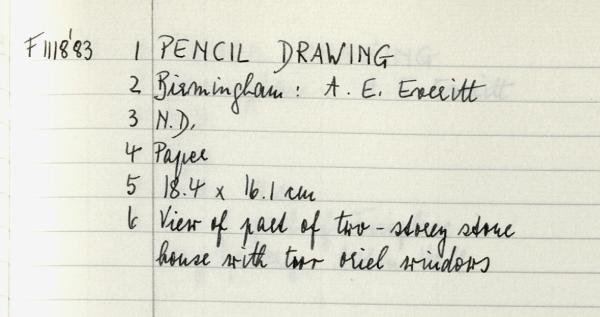 F1118'83 1 PENCIL DRAWING
2 Birmingham: A. E. Everitt
3 N.D.
4 Paper
5 18.4 x 16.1 cm
6 View of part of two-storey stone
house with two oriel windows